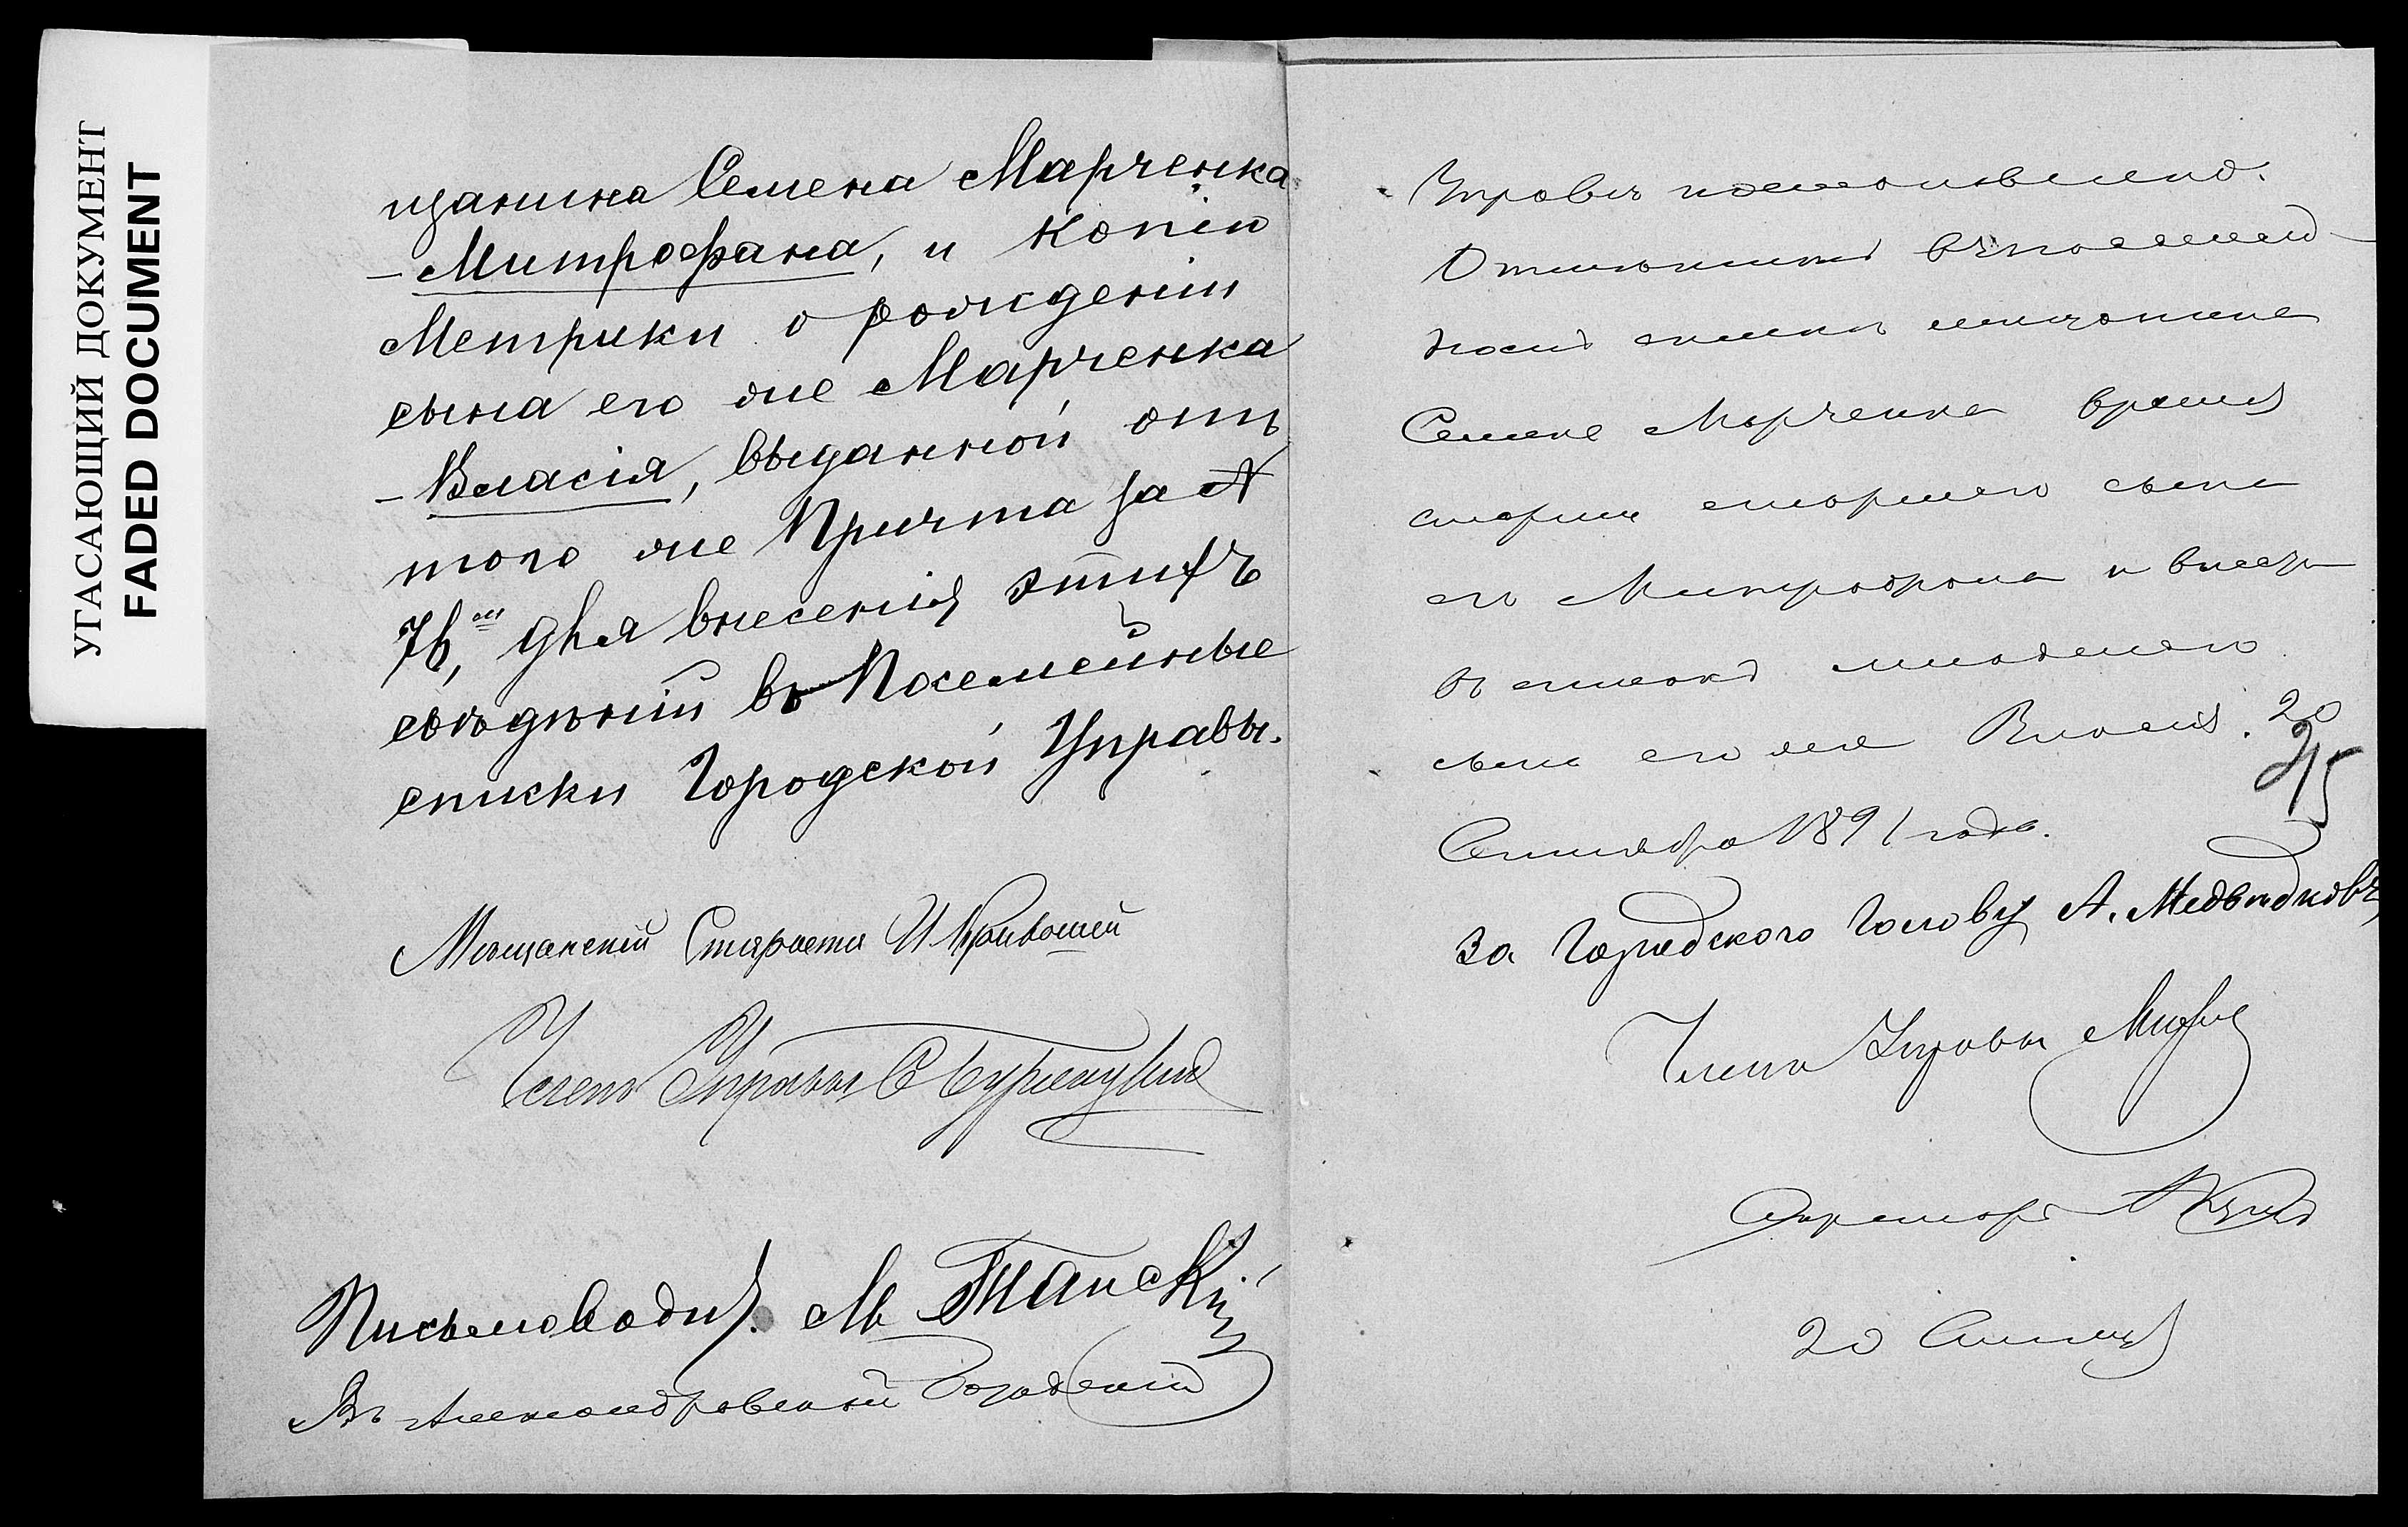 УГАСАЮЩИЙ ДОКУМЕНТ
FADED DOCUMENT
щанина Семена Марченка
- Митрофана, и копію
Метрики о рожденіи
сына его же Марченка
- Власія, выданной отъ
того же Причта за №
76, для внесенія этихъ
свѣдѣній въ Посемейные
списки Городской Управы.
Мѣщанскій Староста И
Членъ Управы С
Письмоводит. М
Въ Александровской Городской
Управѣ постановлено:
Отмѣтить въ посемей-
номъ спискѣ мѣщанина
Семена Марченка время
смерти старшего сына
его Митрофана и внести
въ списокъ младшего
сына его же Власія. 20
215
Сентября 1891 года.
За Городского Голову А. Медвѣдковъ
Членъ Управы
Секретарь
20